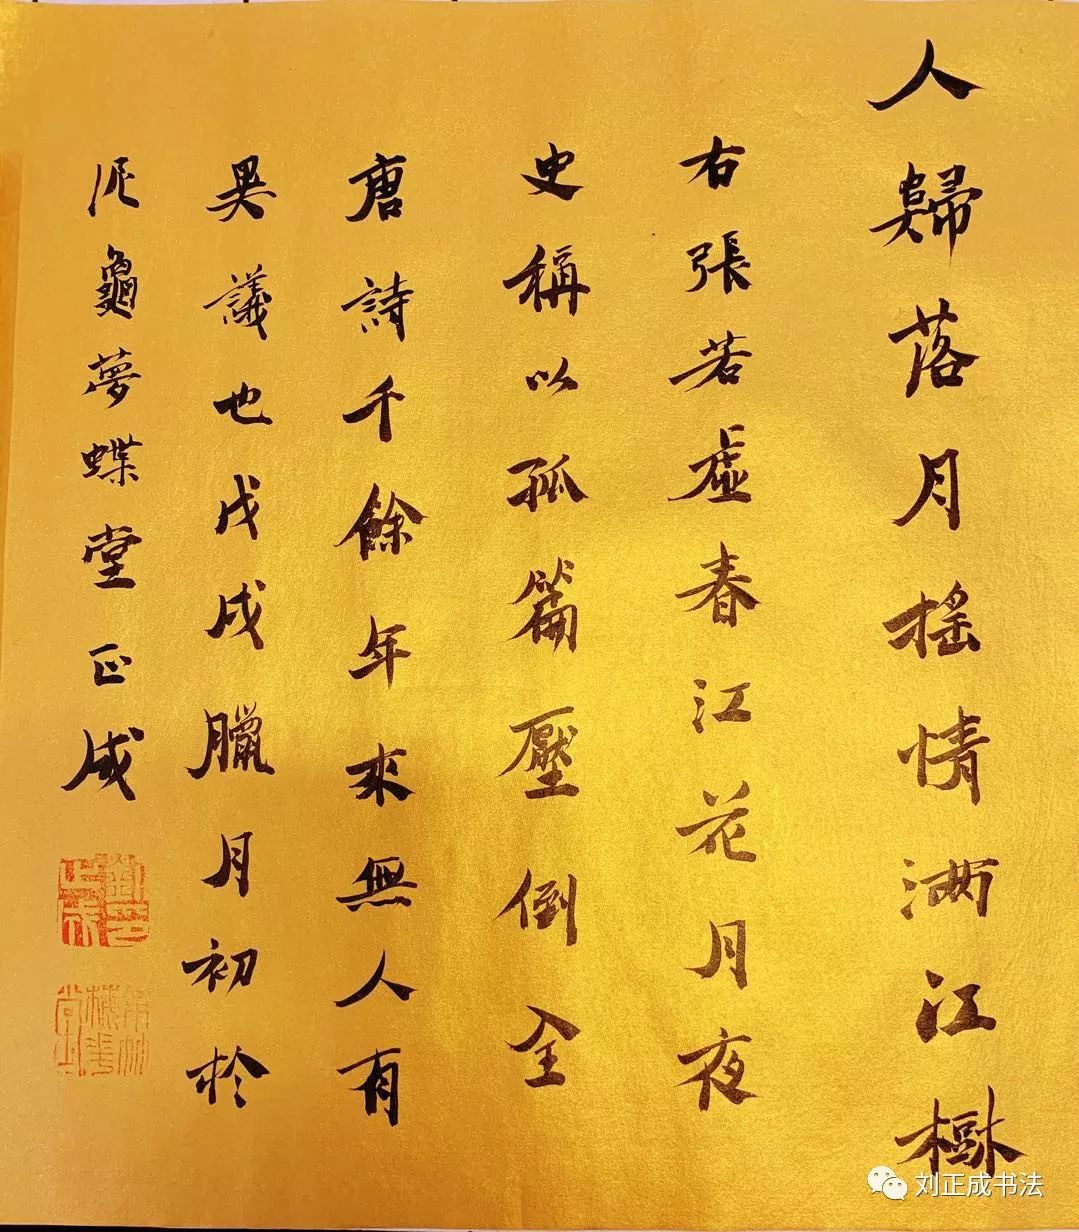 人歸落月搖情滿江樹
右張若虛春江花月夜
史稱以孤篇壓倒全
唐詩千餘年來無人有
異議也戊戌臘月初於
泥龜夢蝶堂正成
刘正成书法